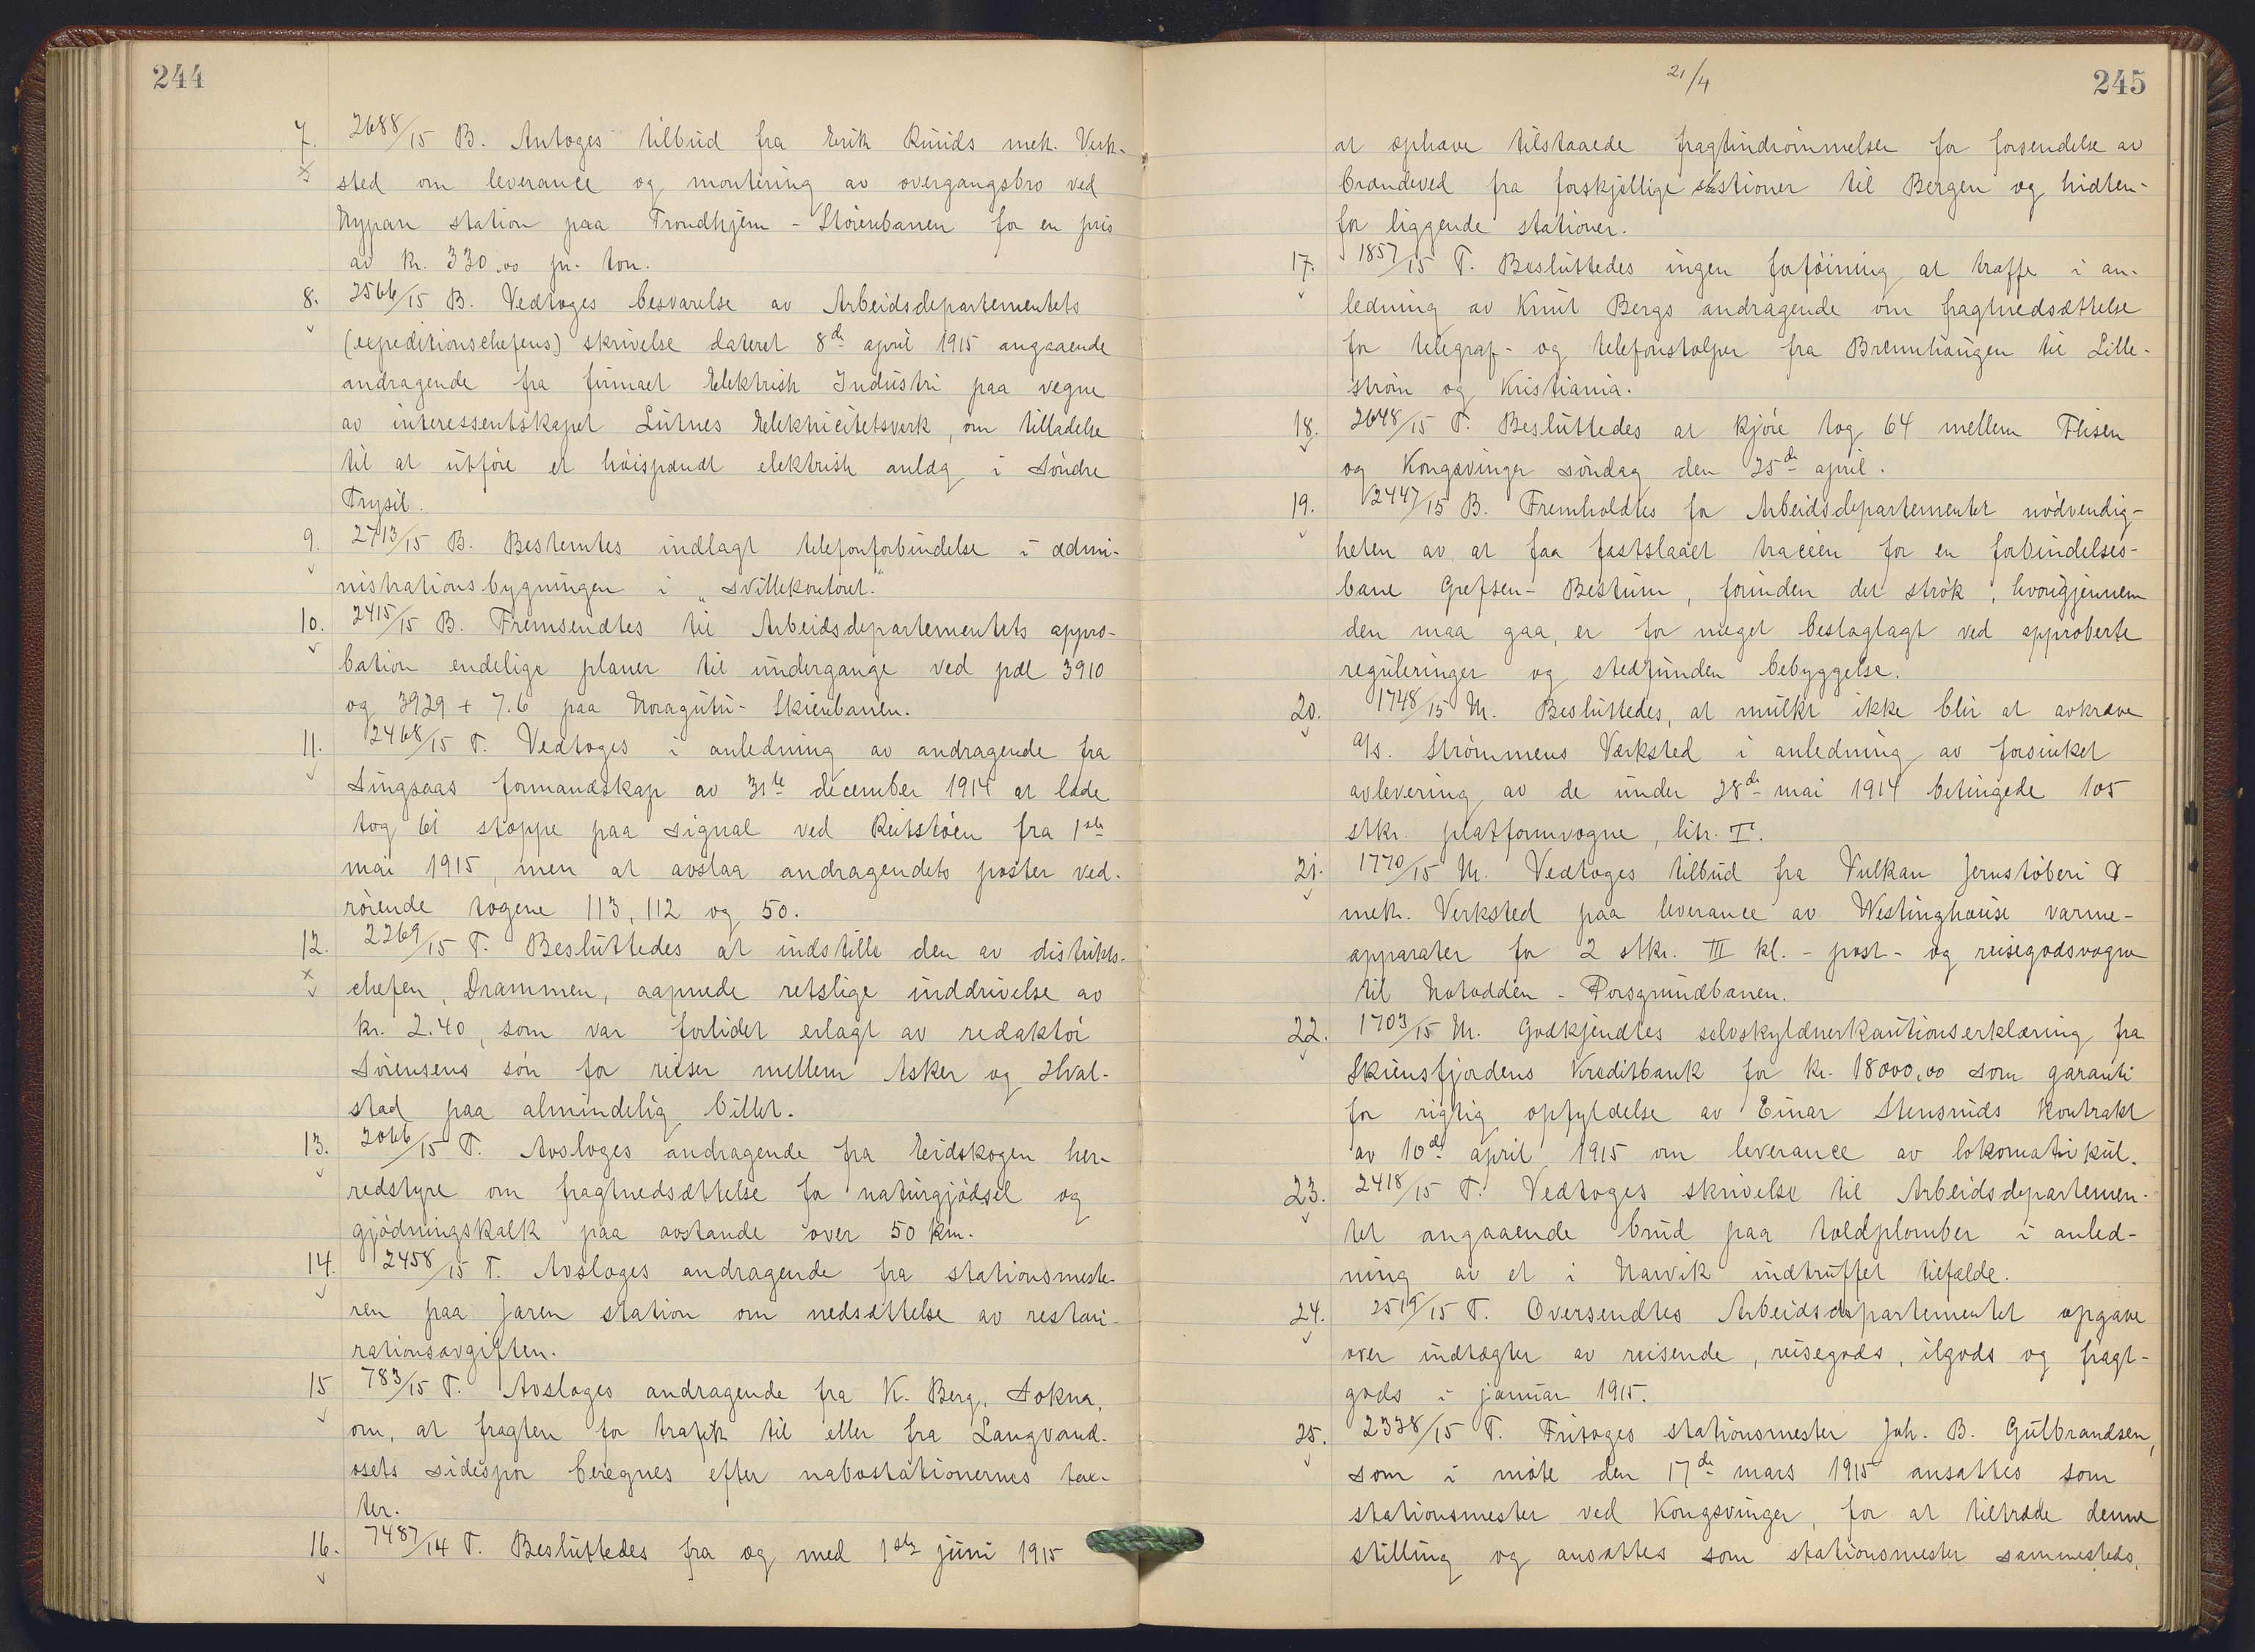 244
7. 2688/15 B. Antoges tilbud fra Erik Ruuds mek. Verk-
x sted om leverance og montering av overgangsbro ved
Nypan station paa Trondhjem - Störenbanen for en pris
av kr. 330.00 pr. ton.
8. 2566/15 B. Vedtoges besvarelse av Arbeidsdepartementets
(expeditionschefens) skrivelse dateret 8de april 1915 angaaende
andragende fra firmaet Elektrisk Industri paa vegne
av interessentskapet Lutnes Elektricitetsverk, om tilladelse
til at utföre et höispændt elektrisk anlæg i Söndre
Trysil.
9. 2713/15 B. Bestemtes indlagt telefonforbindelse i admi-
nistrationsbygningen i "svillekontoret."
10. 2415/15 B. Fremsendtes til Arbeidsdepartementets appro-
bation endelige planer til undergange ved pæl 3910
og 3929 + 7.6 paa Noragutu - Skienbanen.
11. 2468/15 T. Vedtoges i anledning av andragende fra
Singsaas formandskap av 31te december 1914 at lade
tog 61 stoppe paa signal ved Reitstöen fra 1ste
mai 1915, men at avslaa andragendets poster ved-
rörende togene 113, 112 og 50.
12. 2269/15 T. Besluttedes at indstille den av distrikts-
x chefen, Drammen, aapnede retslige inddrivelse av
kr. 2.40, som var forlidet erlagt av redaktör
Sörensens sön for reiser mellem Asker og Hval-
stad paa almindelig billet.
13. 2066/15 T. Avsloges andragende fra Eidskogen her-
redstyre om fragtnedsættelse for naturgjödsel og
gjödningskalk paa avstande over 50 km.
14. 2458/15 T. Avsloges andragende fra stationsmeste-
ren paa Jaren station om nedsættelse av restau-
rationsavgiften.
15 783/15 T. Avsloges andragende fra K. Berg, Sokna,
om, at fragten for trafik til eller fra Langvand-
osets sidespor beregnes efter nabostationernes tax-
ter.
16. 7487/14 T. Besluttedes fra og med 1ste juni 1915
21/4
245
at ophæve tilstaaede fragtindrömmelser for forsendelse av
brændeved fra forskjellige stationer til Bergen og hidten-
for liggende stationer.
17. 1857/15 T. Besluttedes ingen forföining at træffe i an-
ledning av Knut Bergs andragende om fragtnedsættelse
for telegraf- og telefonstolper fra Brennhaugen til Lille-
ström og Kristiania.
18. 2648/15 T. Besluttedes at kjöre tog 64 mellem Flisen
og Kongsvinger söndag den 25de april.
19. 2447/15 B. Fremholdtes for Arbeidsdepartementet nödvendig-
heten av at faa fastslaaet traceen for en forbindelses-
bane Grefsen - Bestum, forinden det strök, hvorigjennem
den maa gaa, er for meget beslaglagt ved approberte
reguleringer og stedfunden bebyggelse.
20. 1748/15 M. Besluttedes, at mulkt ikke blir at avkræve
a/s. Strömmens Værksted i anledning av forsinket
avlevering av de under 28de mai 1914 betingede 105
stkr. platformvogne, litr. T.
21. 1770/15 M. Vedtoges tilbud fra Vulkan Jernstöberi &
mek. Verksted paa leverance av Westinghouse varme-
apparater for 2 stkr. III kl. - post- og reisegodsvogne
til Notodden - Porsgrundbanen.
22. 1703/15 M. Godkjendtes selvskyldnerkautionserklæring fra
Skiensfjordens Kreditbank for kr. 18000,00 som garanti
for rigtig opfyldelse av Einar Stensruds kontrakt
av 10de april 1915 om leverance av lokomotivkul.
23. 2418/15 T. Vedtoges skrivelse til Arbeidsdepartemen-
tet angaaende brud paa toldplomber i anled-
ning av et i Narvik indtruffet tilfælde.
24. 2519/15 T. Oversendtes Arbeidsdepartementet opgave
over indtægter av reisende, reisegods, ilgods og fragt-
gods i januar 1915.
25. 2338/15 T. Fritoges stationsmester Joh. B. Gulbrandsen,
som i möte den 17de mars 1915 ansattes som
stationsmester ved Kongsvinger, for at tiltræde denne
stilling og ansattes som stationsmester sammesteds,